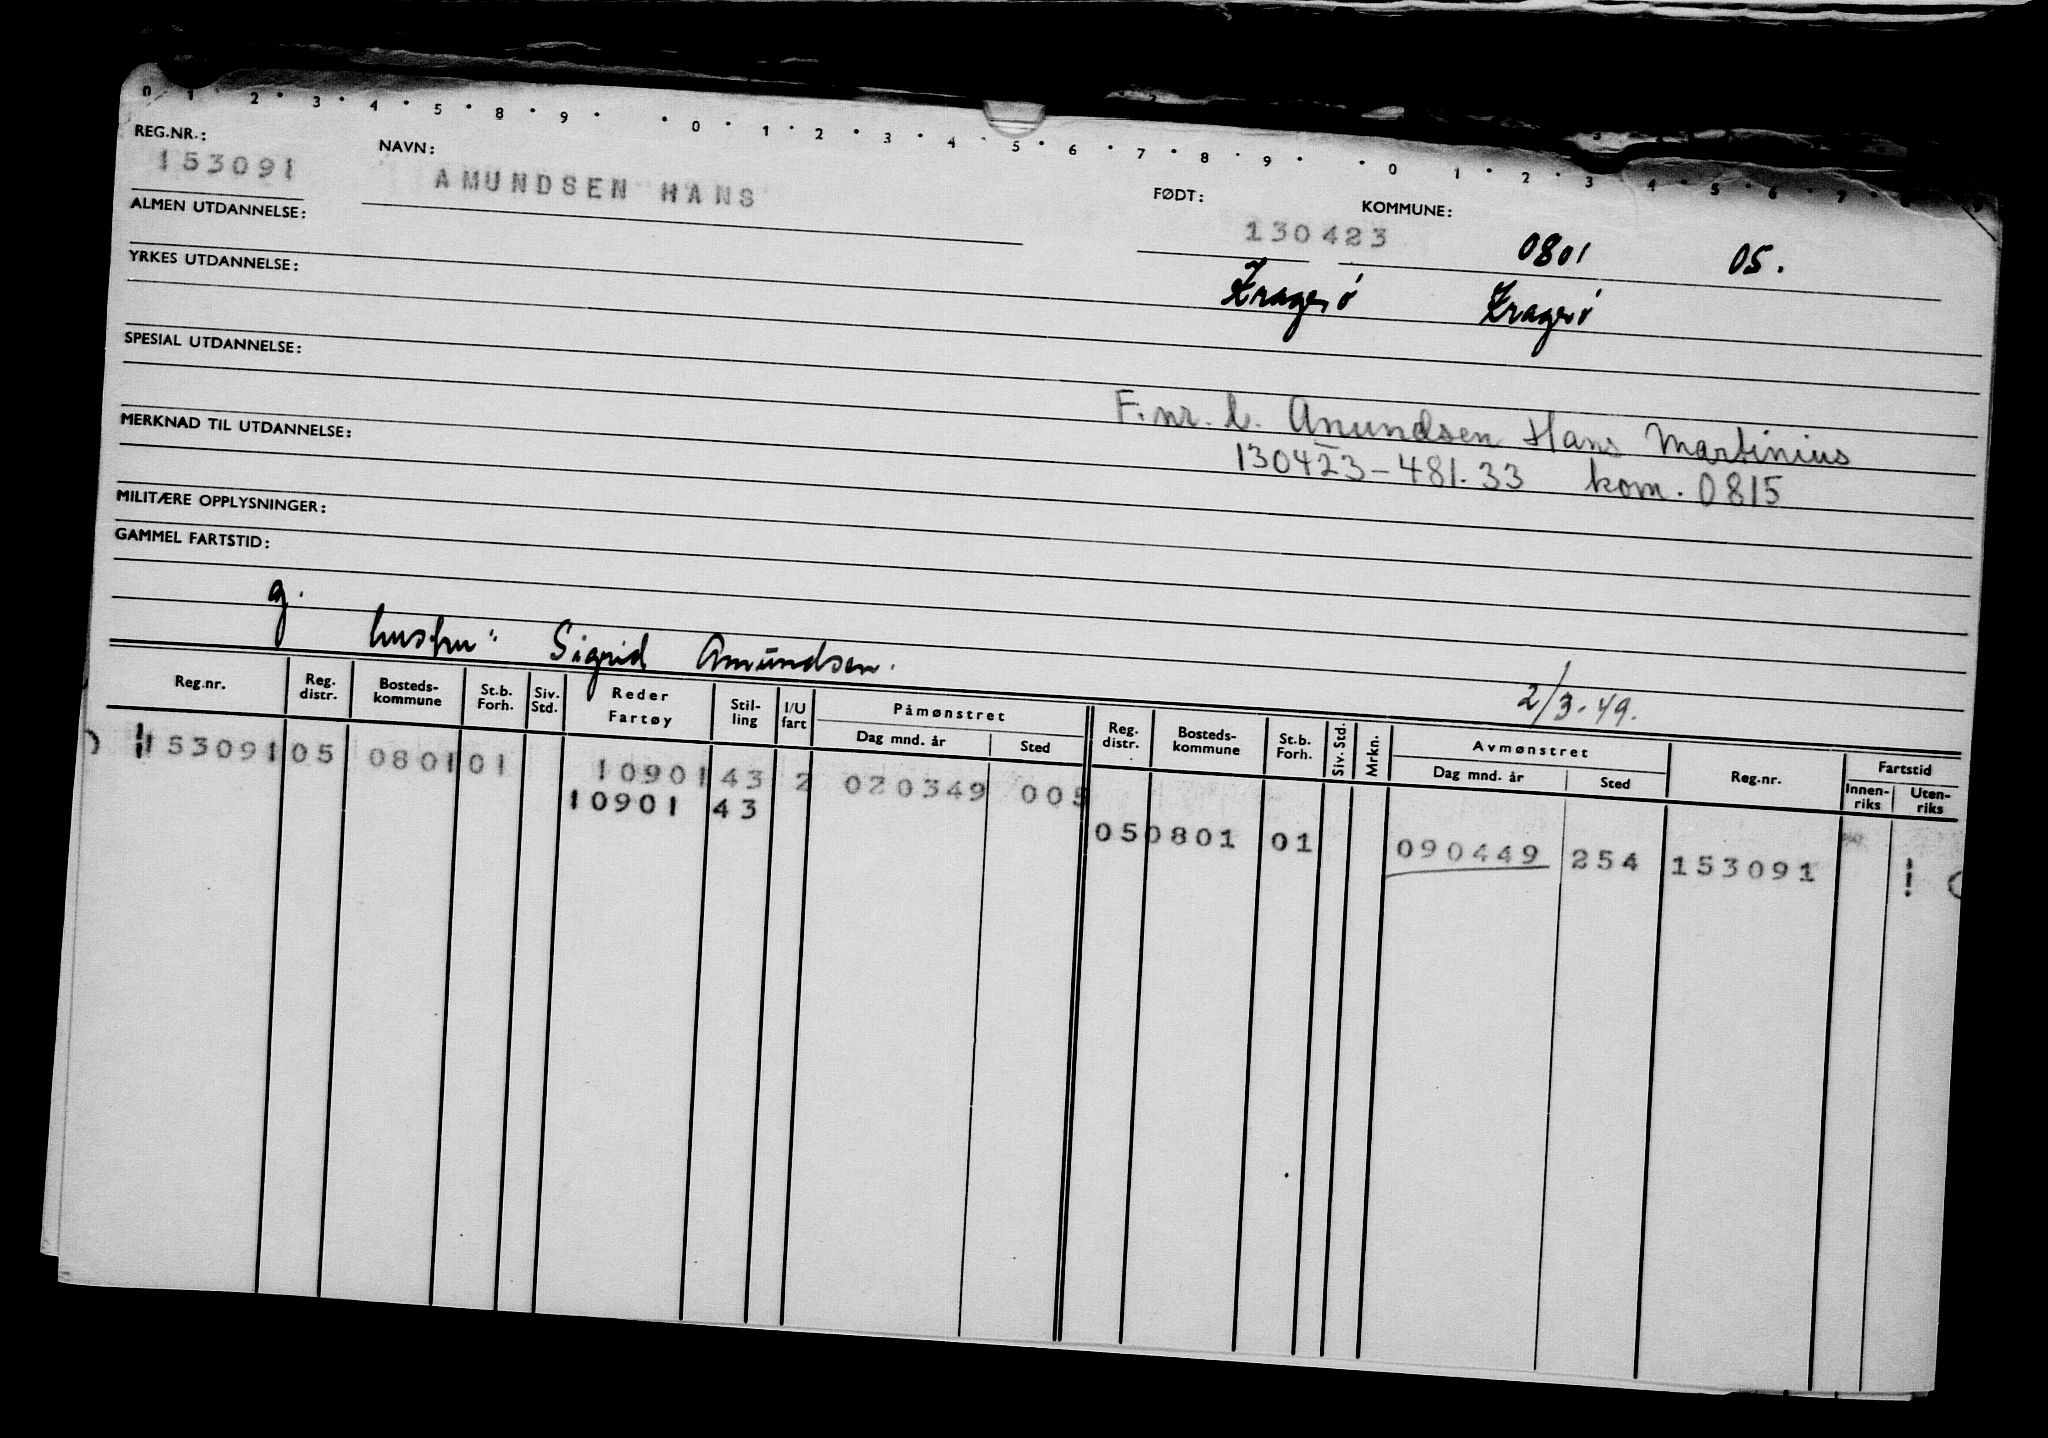 0 1 · 2 · 3 · 4 · 5 · 8 · 9 · · 0 · 1 · 2 · 3 · 4 · 5 · 6 · 7 · 8 · 9 · · 0 · 1 · 2 · 3 · 4 · 5 · 6 · 7
REG.NR.: 153091 NAVN: AMUNDSEN HANS FØDT: 130423 KOMMUNE: 0801 05.
ALMEN UTDANNELSE:
Kragerø Kragerø
YRKES UTDANNELSE:
SPESIAL UTDANNELSE:
F.nr. l. Anundsen Hans Martinius
MERKNAD TIL UTDANNELSE:
130423-481.33 kom. 0815
MILITÆRE OPPLYSNINGER:
GAMMEL FARTSTID:
g. hustru: Sigrid Amundsen.
2/3-49.
Reg.nr. Reg. distr. Bosteds-kommune St.b. Forh. Siv. Std. Reder Fartøy Stil-ling I/U fart Påmønstret Dag mnd. år Sted Reg. distr. Bosteds-kommune St.b. Forh. Siv. Std. Mrkn. Avmønstret Dag mnd. år Sted Reg.nr. Fartstid Innen-riks Uten-riks
153091 05 0801 01 10901 43 2 020349 005
10901 43
05 0801 01 090449 254 153091